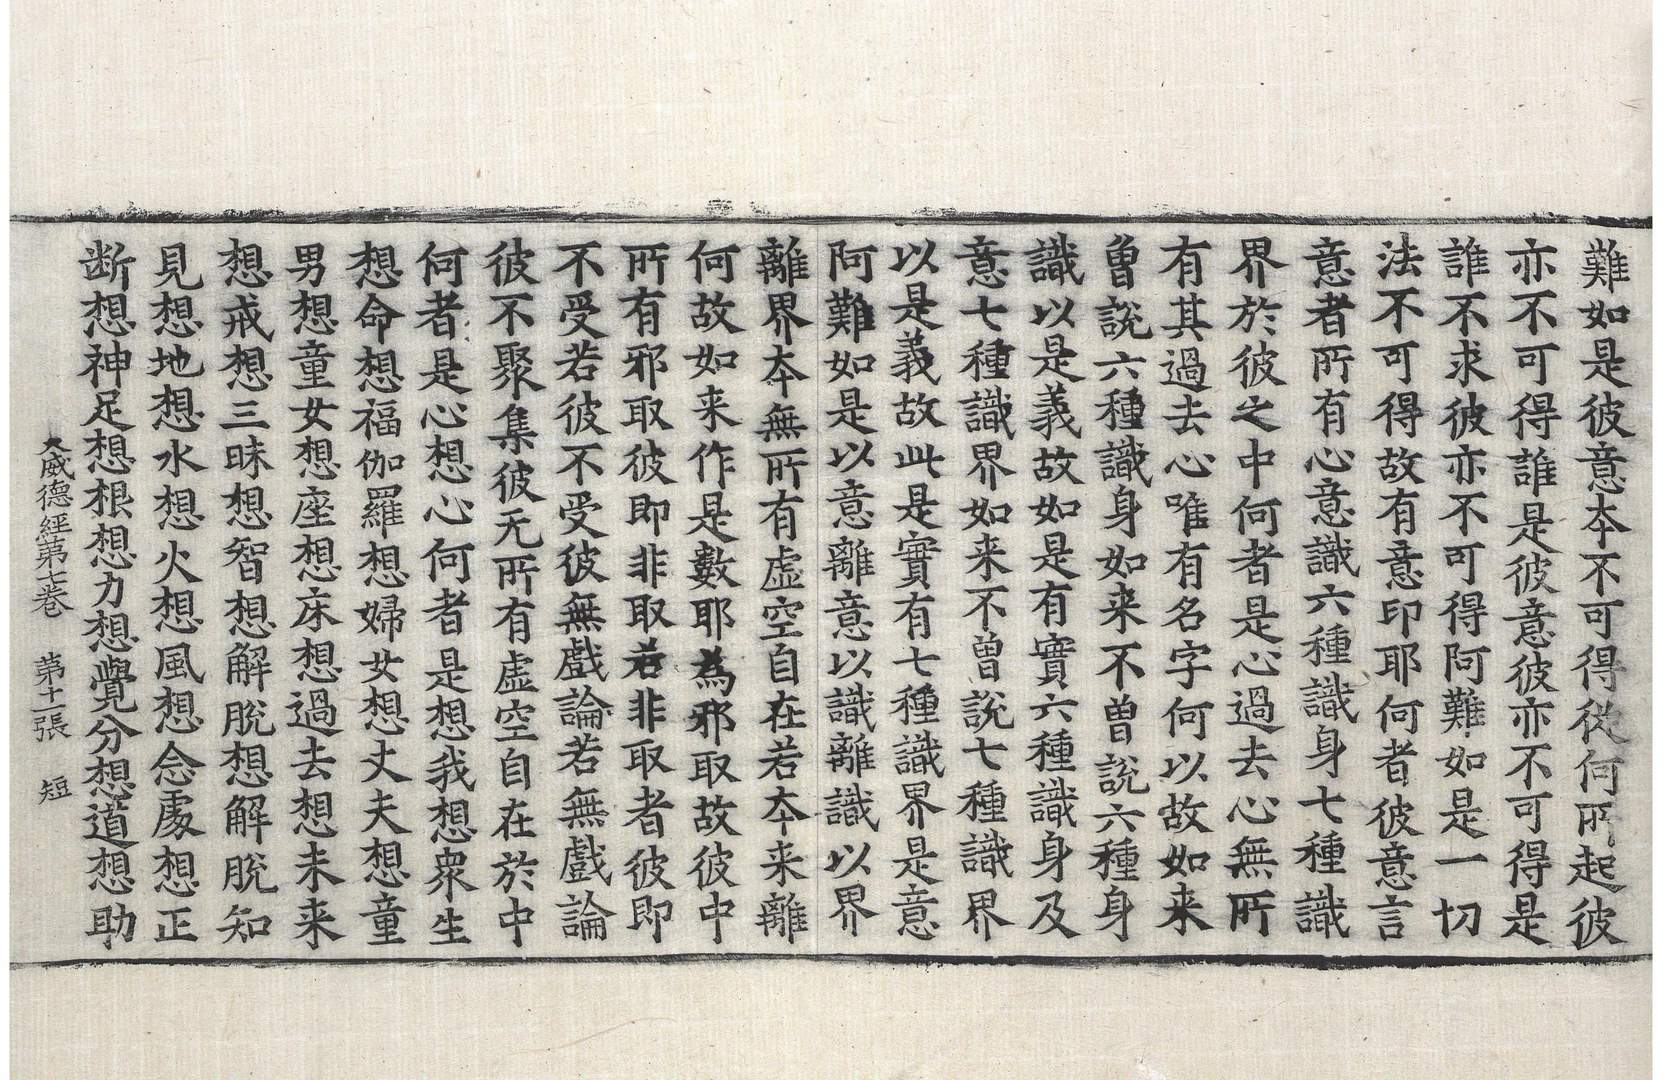 難如是彼意夲不可得從何所起彼
亦不可得誰是彼意彼亦不可得是
誰不求彼亦不可得阿難如是一切
法不可得故有意印耶何者彼意言
意者所有心意識六種識身七種識
界於彼之中何者是心過去心無所
有其過去心唯有名字何以故如来
曾說六種識身如来不曾說六種身
識以是義故如是有實六種識身及
意七種識界如来不曾說七種識界
以是義故此是實有七種識界是意
阿難如是以意離意以識離識以界
離界夲無所有虛空自在若夲来離
何故如来作是數耶為邪取故彼中
所有邪取彼即非取若非取者彼即
不受若彼不受彼無戲論若無戲論
彼不聚集彼无所有虛空自在於中
何者是心想心何者是想我想衆生
想命想福伽羅想婦女想丈夫想童
男想童女想座想床想過去想未来
想戒想三昧想智想解脫想解脫知
見想地想水想火想風想念處想正
断想神足想根想力想覺分想道想助
大威德經第七卷 第十一張 短